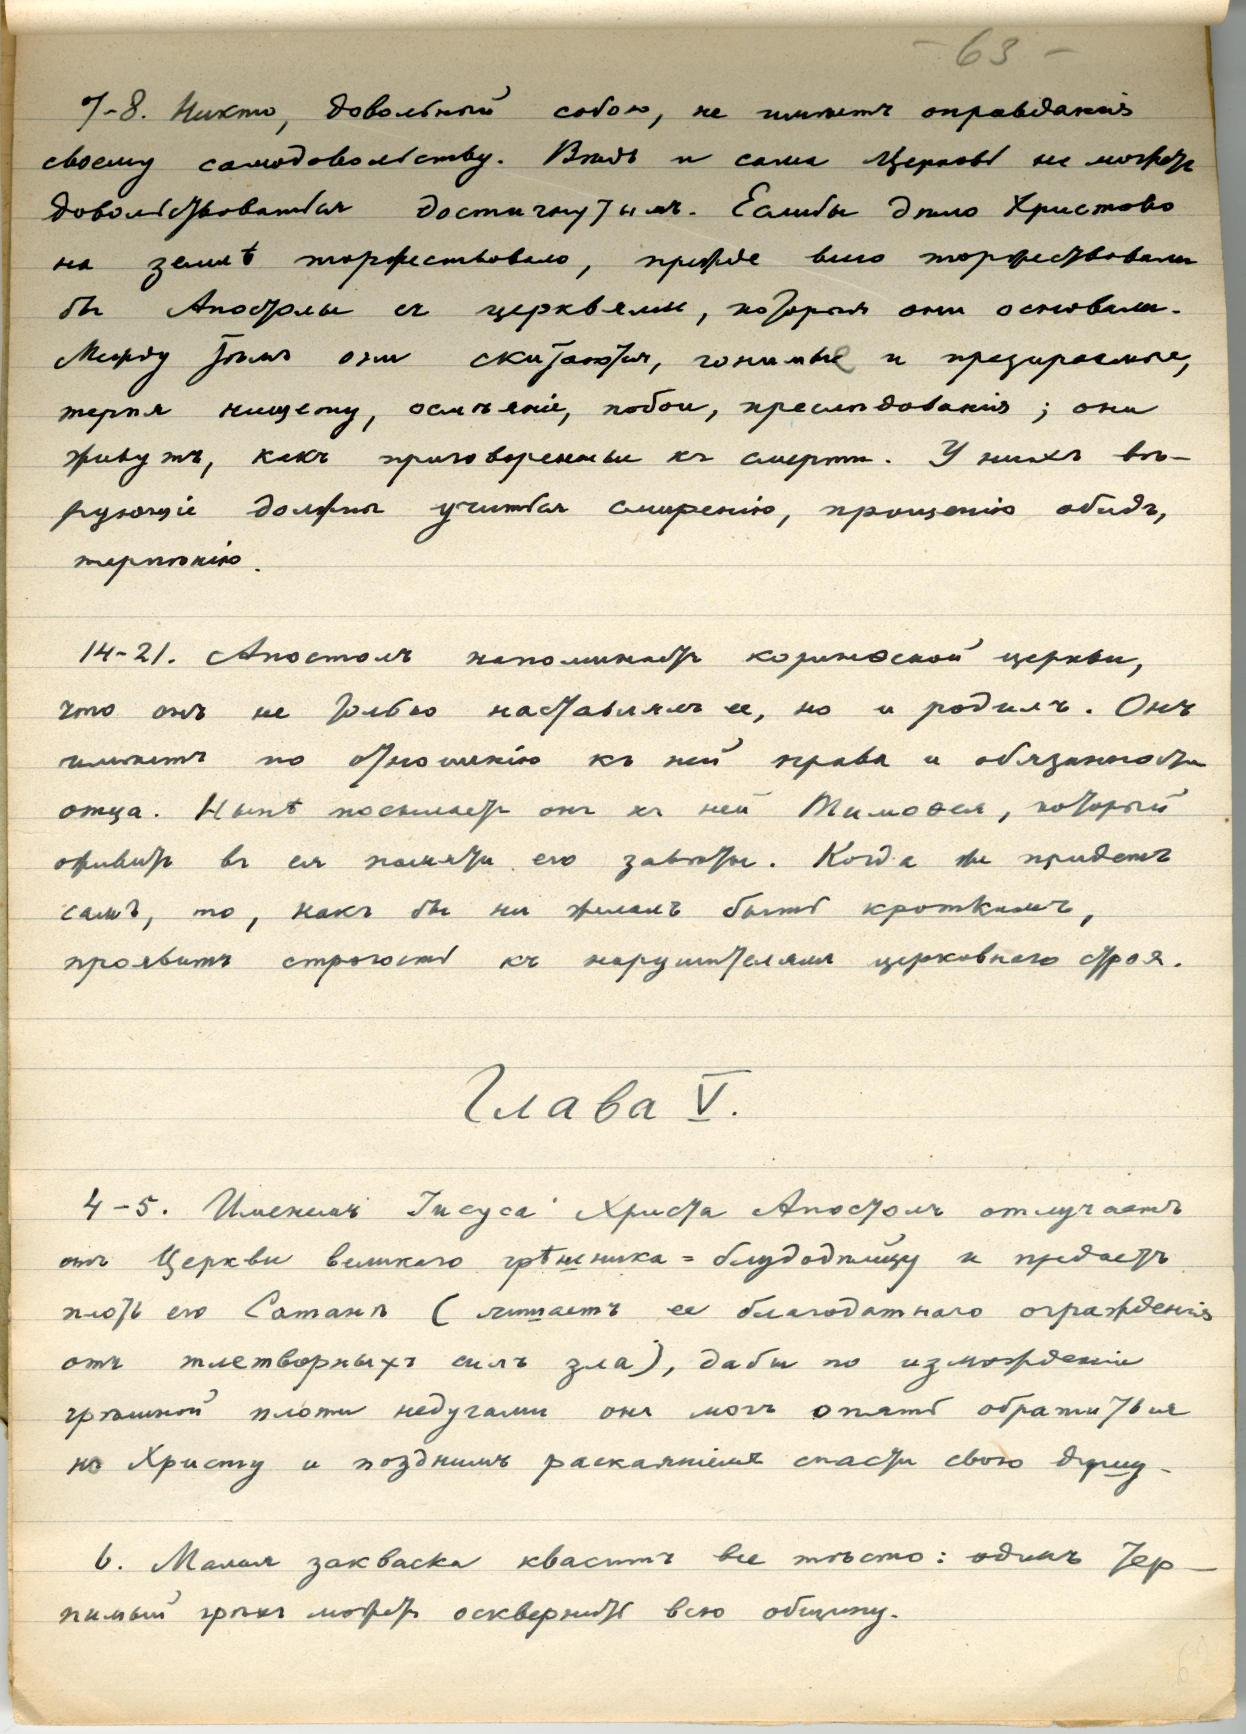 - 63 -
7-8. Никто, довольный собою, не имѣетъ оправданія
своему самодовольству. Вѣдь и сама Церковь не можетъ
довольствоваться достигнутымъ. Еслибы дѣло Христово
на землѣ торжествовало, прежде всего торжествовали
бы Апостолы съ церквями, которыя они основали.
Между тѣмъ они скитаются, гонимые и презираемые,
терпя нищету, осмѣяніе, побои, преслѣдованія; они
живутъ, какъ приговоренные къ смерти. У нихъ вѣ-
рующіе должны учиться смиренію, прощенію обидъ,
терпѣнію.
14-21. Апостолъ напоминаетъ коринѳской церкви,
что онъ не только наставлялъ ее, но и родилъ. Онъ
имѣетъ по отношенію къ ней права и обязанности
отца. Нынѣ посылаетъ онъ къ ней Тимоѳея, который
оживитъ въ ея памяти его завѣты. Когда же придетъ
самъ, то, какъ бы ни желалъ быть кроткимъ,
проявитъ строгость къ нарушителямъ церковнаго строя.
Глава V.
4-5. Именемъ Іисуса Христа Апостолъ отлучаетъ
отъ Церкви великаго грѣшника = блудодѣйцу и предаетъ
плоть его Сатанѣ (лишаетъ ее благодатнаго огражденія
отъ тлетворныхъ силъ зла), дабы по изможденіи
грѣшной плоти недугами онъ могъ опять обратиться
ко Христу и позднимъ раскаяніемъ спасти свою душу.
6. Малая закваска кваситъ все тѣсто: одинъ тер-
пимый грѣхъ можетъ осквернить всю общину.